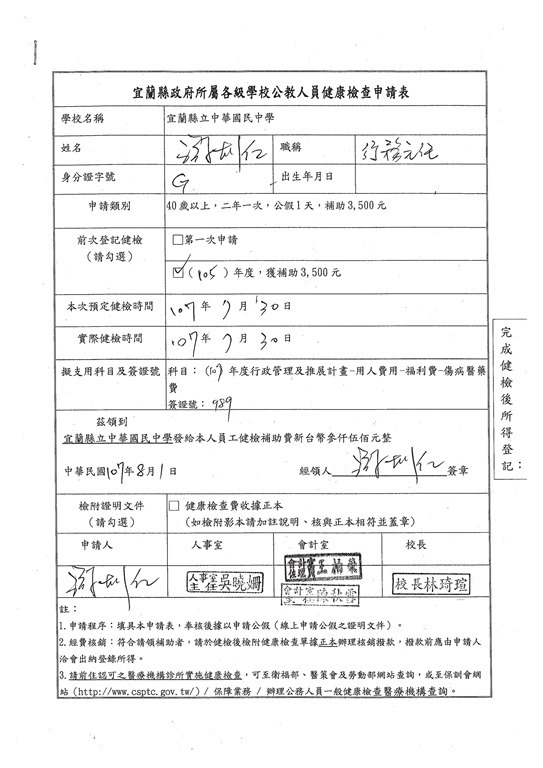 宜蘭縣政府所屬各級學校公教人員健康檢查申請表
學校名稱 宜蘭縣立中華國民中學
姓名 職稱
身分證字號 G 出生年月日
申請類別 40歲以上，二年一次，公假1天，補助3,500元
前次登記健檢 □第一次申請
(請勾選) ☑(105)年度，獲補助3,500元
本次預定健檢時間 107年7月30日
實際健檢時間 107年7月30日
擬支用科目及簽證號 科目：(107年度行政管理及推展計畫-用人費用-福利費-傷病醫藥費
簽證號：989
茲領到
宜蘭縣立中華國民中學發給本人員工健檢補助費新台幣參仟伍佰元整
中華民國107年8月1日 經領人 簽章
檢附證明文件 □ 健康檢查費收據正本
(請勾選) (如檢附影本請加註說明、核與正本相符並蓋章)
申請人 人事室 會計室 校長
人事室主任吳曉姍 校長林琦瑄
註：
1.申請程序：填具本申請表，奉核後據以申請公假（線上申請公假之證明文件）。
2.經費核銷：符合請領補助者，請於健檢後檢附健康檢查單據正本辦理核銷撥款，撥款前應由申請人
洽會出納登錄所得。
3.請前往認可之醫療機構診所實施健康檢查，可至衛福部、醫策會及勞動部網站查詢，或至保訓會網
站(http://www.csptc.gov.tw/) / 保障業務 / 辦理公務人員一般健康檢查醫療機構查詢。
完成健檢後所得登記：